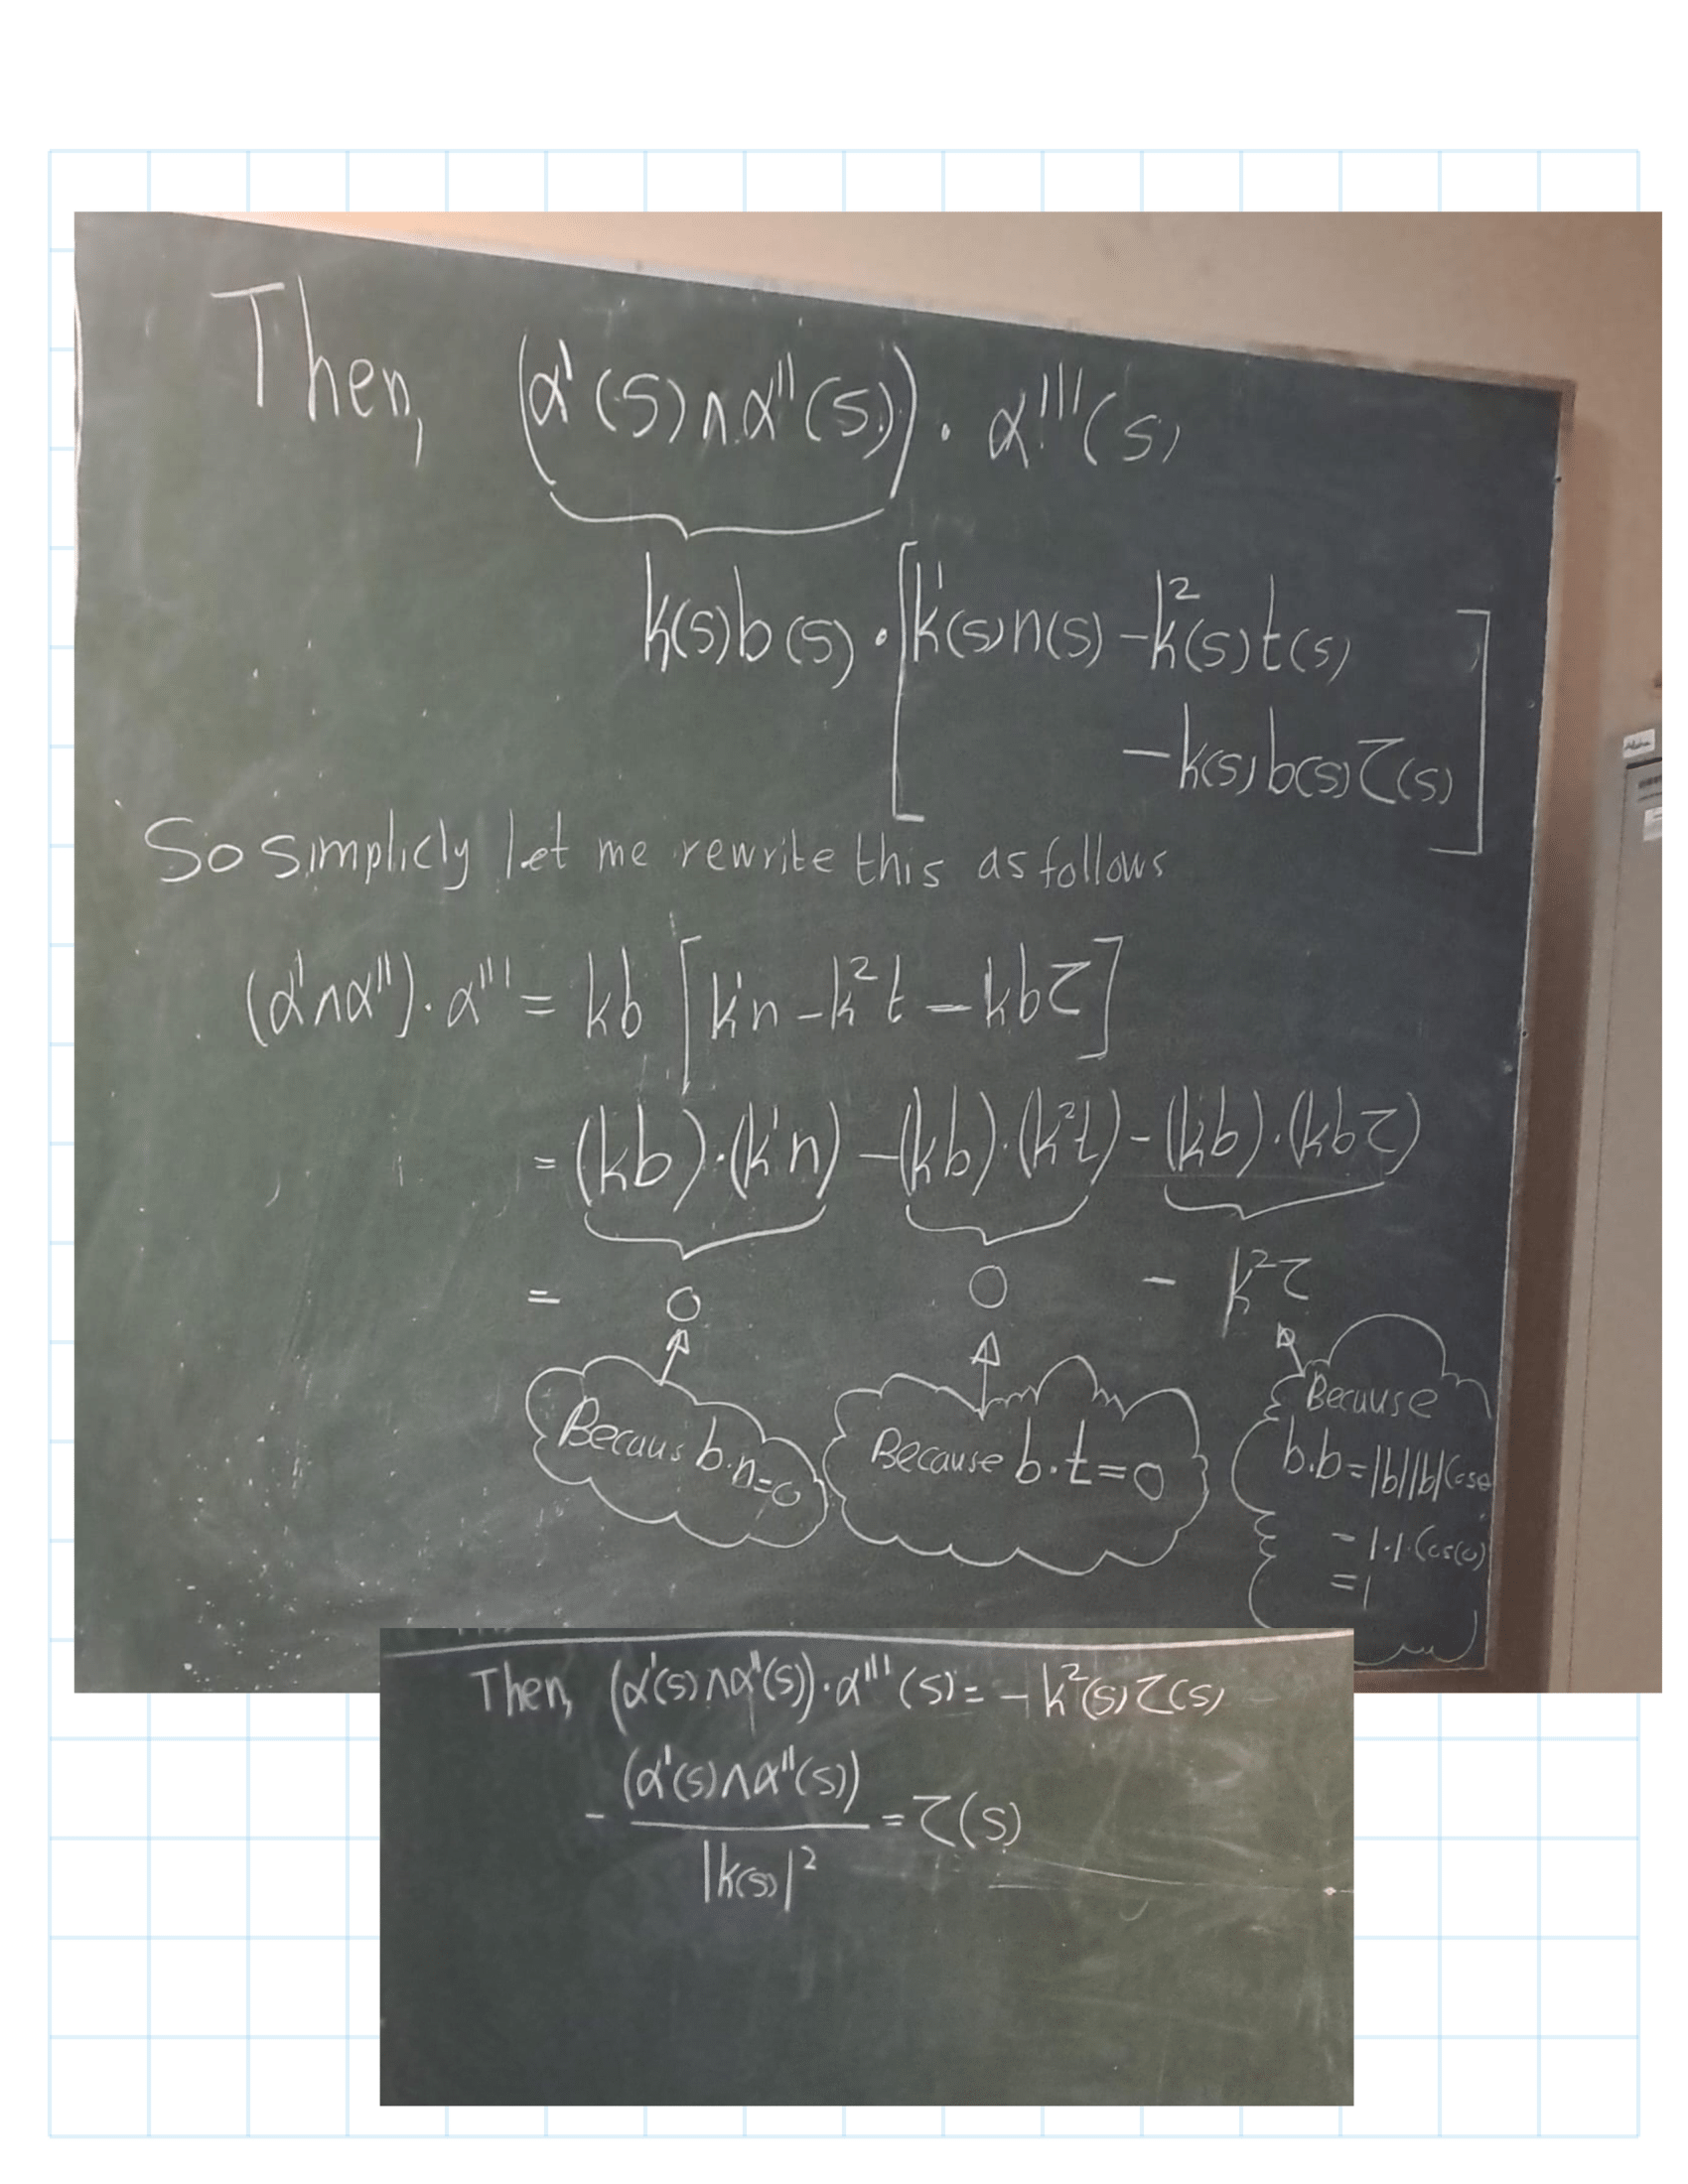 Then, (α'(s)∧α''(s)) · α'''(s)
k(s)b(s) · [k'(s)n(s) − k²(s)t(s)
− k(s)b(s)τ(s)]
So simplicly let me rewrite this as follows
(α'∧α'') · α''' = kb [k'n − k²t − kbτ]
= (kb)·(k'n) − (kb)·(k²t) − (kb)·(kbτ)
= 0 0 − k²τ
Becaus b.n=0
Because b.t=0
Because
b.b=|b||b|Cosθ
= 1.1.Cos(0)
=1
Then, (α'(s)∧α''(s))·α'''(s) = − k²(s)τ(s)
− (α'(s)∧α''(s)) / |k(s)|² = τ(s)